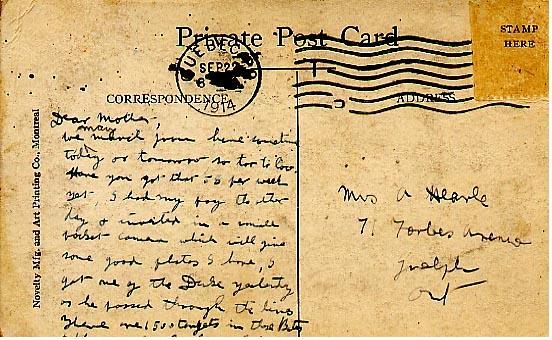 Private Post Card
STAMP
HERE
QUEBEC
SEP 22
6
1914
CORRESPONDENCE
ADDRESS
Novelty Mfg. and Art Printing Co., Montreal
Dear Mother,
may
we march from here sometime
today or tomorrow so
Have you got that 5$ per week
yet, I had my pay the other
day & invested in a small
pocket camera which will give
some good plates I hope, I
got one of the Duke yesterday
as he passed through the lines
in those
Mrs A Hearle
71 Forbes Avenue
Guelph
Ont